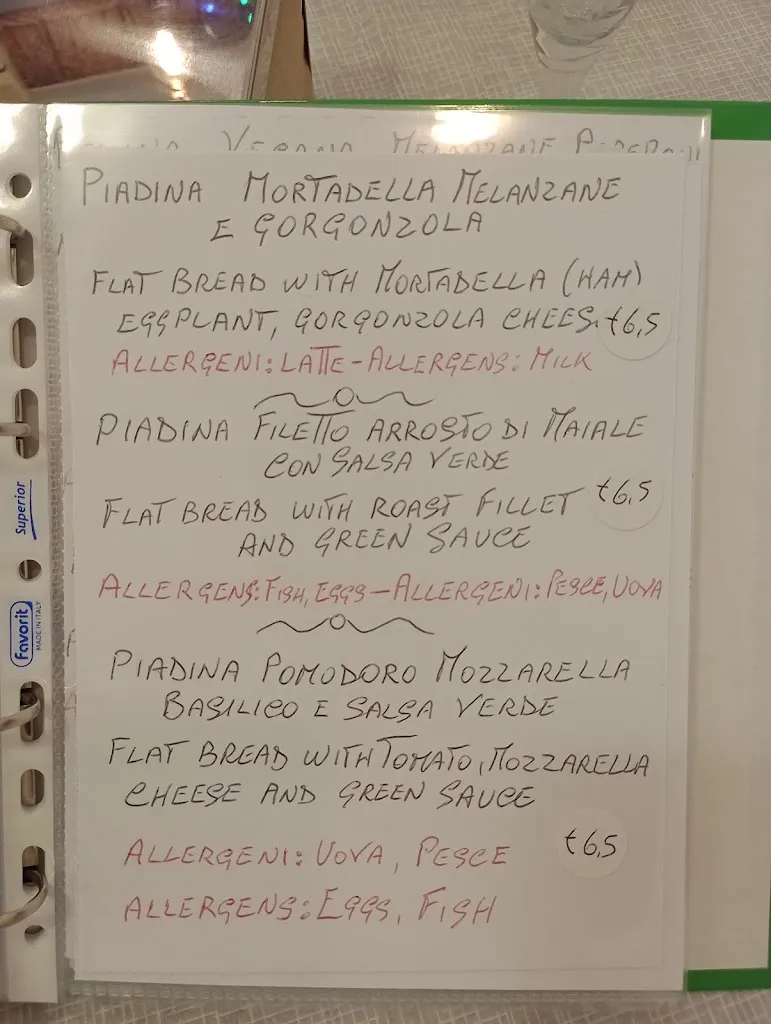 PIADINA MORTADELLA MELANZANE
E GORGONZOLA
FLAT BREAD WITH MORTADELLA (HAM)
EGGPLANT, GORGONZOLA CHEES. €6,5
ALLERGENI: LATTE - ALLERGENS: MILK
PIADINA FILETTO ARROSTO DI MAIALE
CON SALSA VERDE
FLAT BREAD WITH ROAST FILLET €6,5
AND GREEN SAUCE
ALLERGENS: FISH, EGGS - ALLERGENI: PESCE, UOVA
PIADINA POMODORO MOZZARELLA
BASILICO E SALSA VERDE
FLAT BREAD WITH TOMATO, MOZZARELLA
CHEESE AND GREEN SAUCE
€6,5
ALLERGENI: UOVA, PESCE
ALLERGENS: EGGS, FISH
Superior
Favorit
MADE IN ITALY